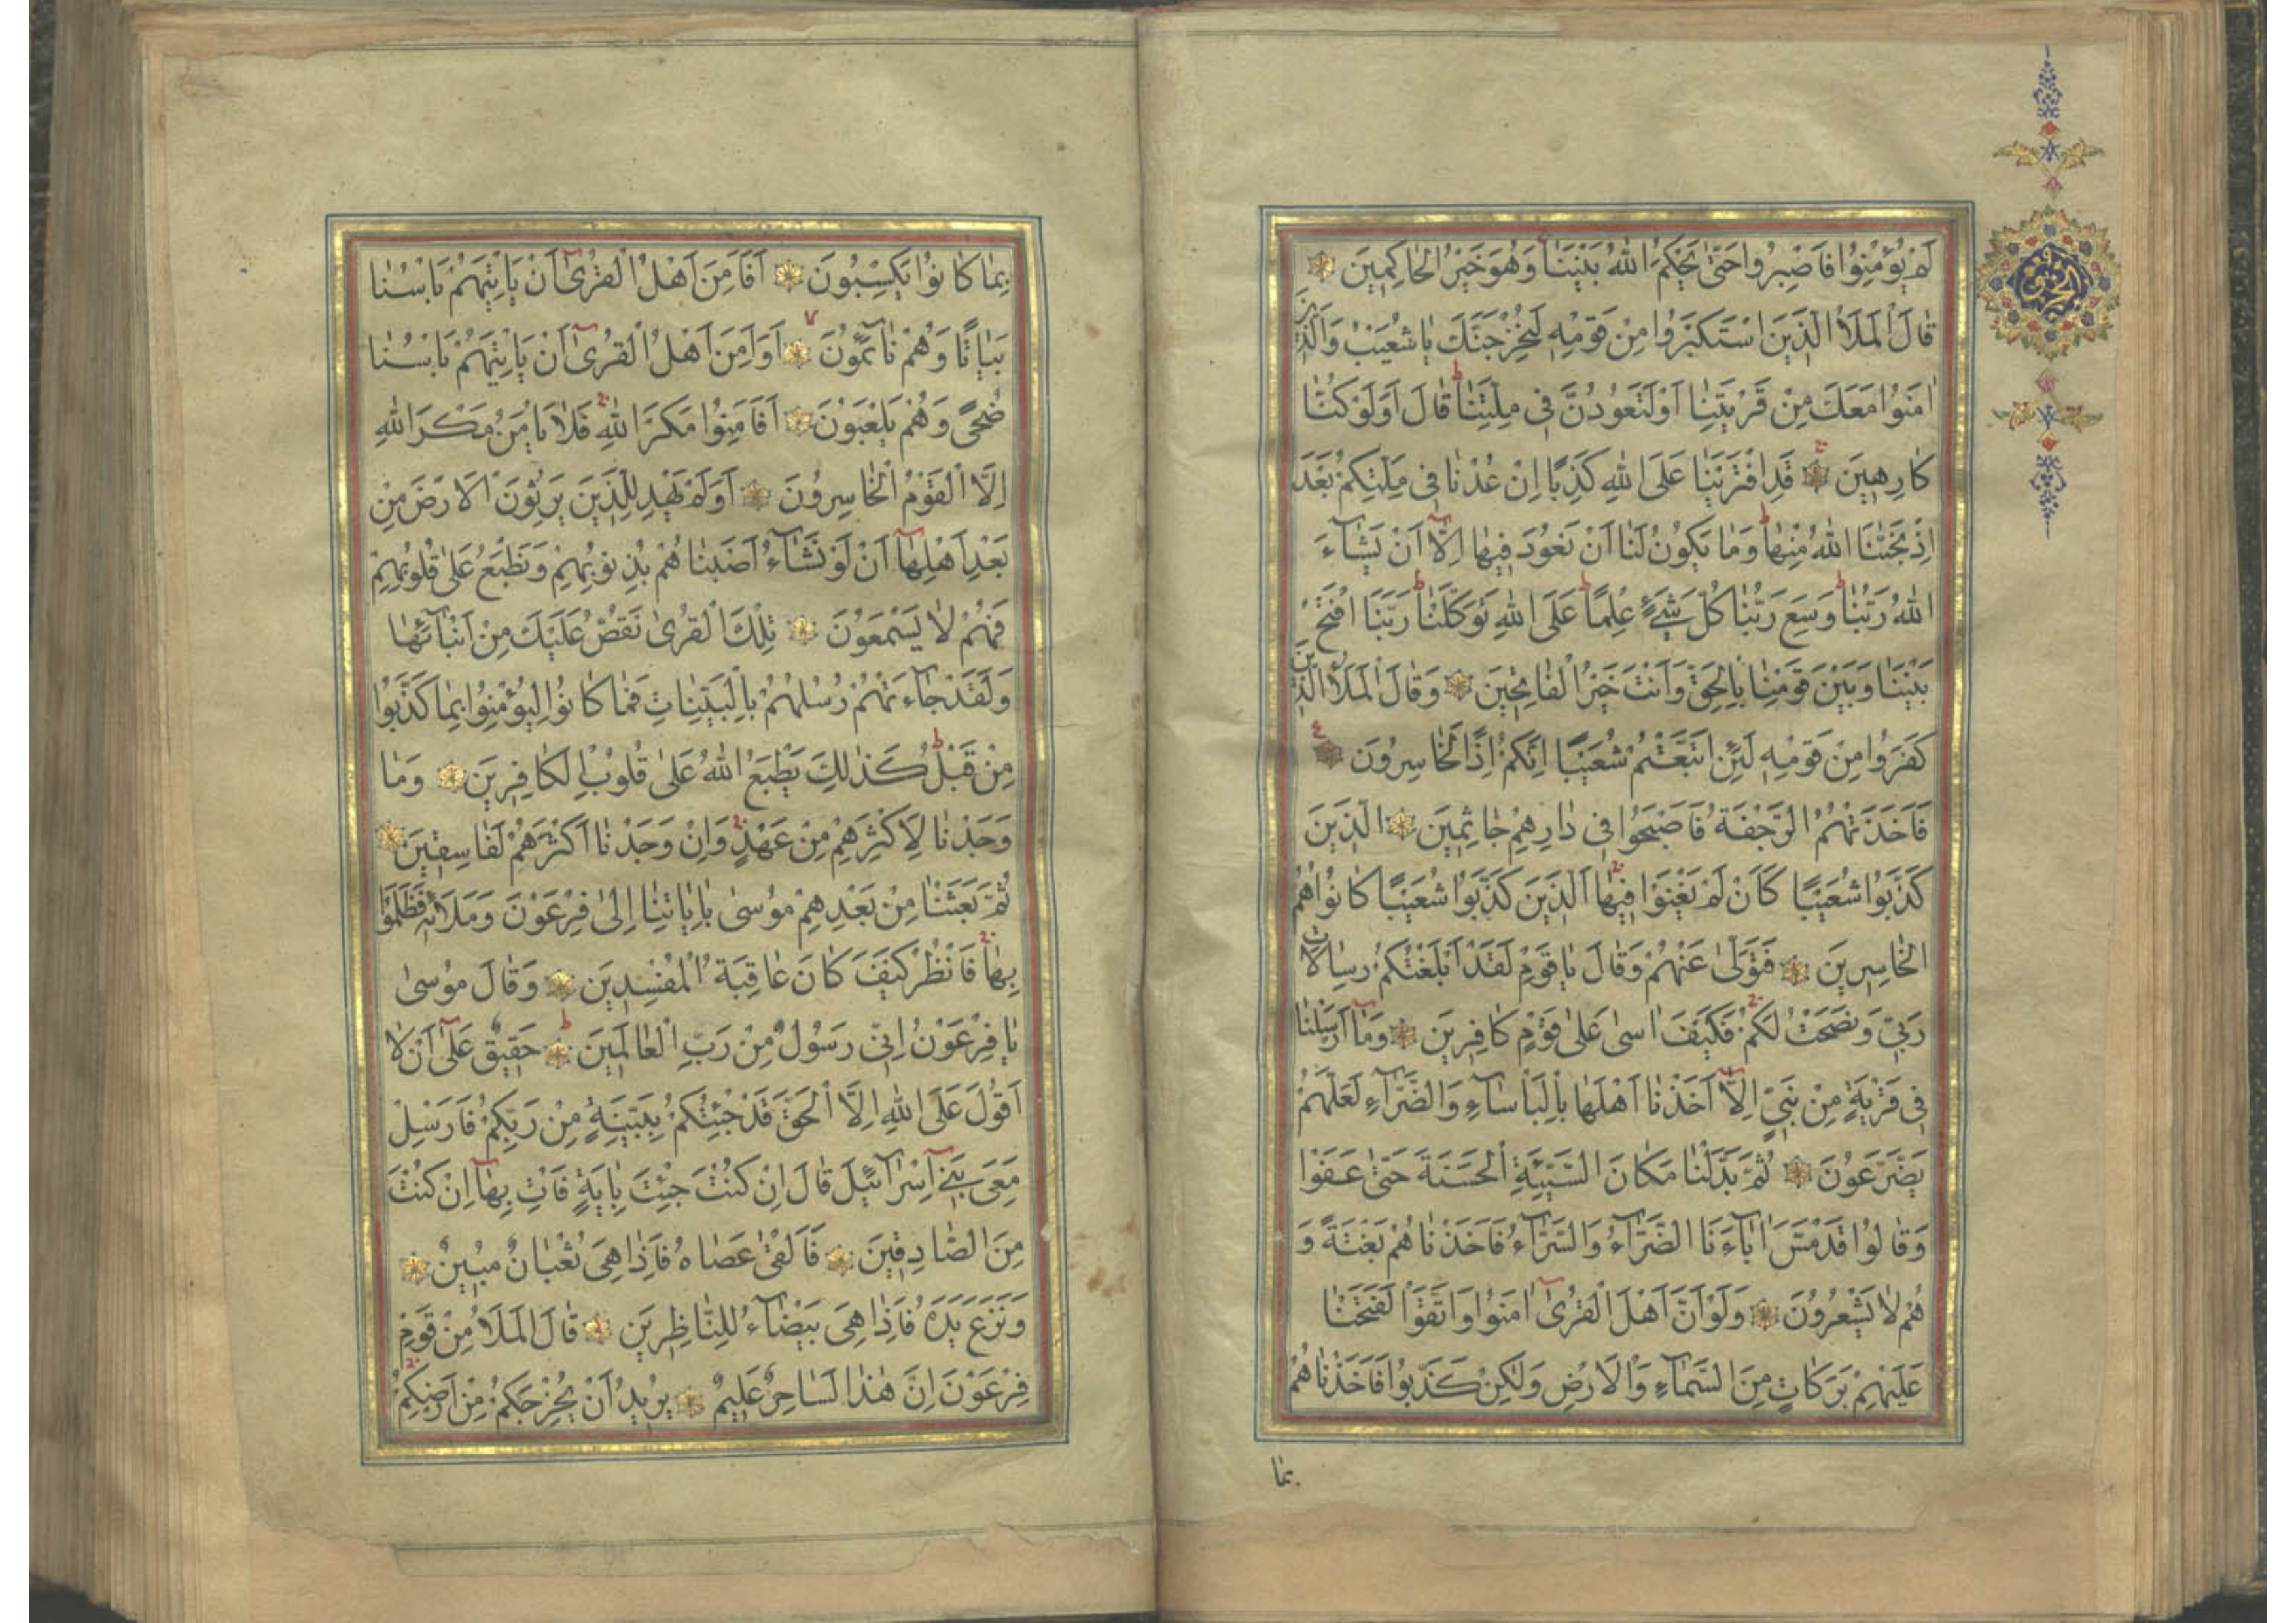 لَمْ يُؤْمِنُوا فَاصْبِرُوا حَتّٰى يَحْكُمَ اللّٰهُ بَيْنَنَا وَهُوَ خَيْرُ الْحَاكِمِينَ
قَالَ الْمَلَأُ الَّذِينَ اسْتَكْبَرُوا مِنْ قَوْمِهِ لَنُخْرِجَنَّكَ يَا شُعَيْبُ وَالَّذِينَ
اٰمَنُوا مَعَكَ مِنْ قَرْيَتِنَا أَوْ لَتَعُودُنَّ فِي مِلَّتِنَا قَالَ أَوَلَوْ كُنَّا
كَارِهِينَ قَدِ افْتَرَيْنَا عَلَى اللّٰهِ كَذِبًا إِنْ عُدْنَا فِي مِلَّتِكُمْ بَعْدَ
إِذْ نَجّٰنَا اللّٰهُ مِنْهَا وَمَا يَكُونُ لَنَا أَنْ نَعُودَ فِيهَا إِلَّا أَنْ يَشَآءَ
اللّٰهُ رَبُّنَا وَسِعَ رَبُّنَا كُلَّ شَيْءٍ عِلْمًا عَلَى اللّٰهِ تَوَكَّلْنَا رَبَّنَا افْتَحْ
بَيْنَنَا وَبَيْنَ قَوْمِنَا بِالْحَقِّ وَأَنْتَ خَيْرُ الْفَاتِحِينَ وَقَالَ الْمَلَأُ الَّذِينَ
كَفَرُوا مِنْ قَوْمِهِ لَئِنِ اتَّبَعْتُمْ شُعَيْبًا إِنَّكُمْ إِذًا لَخَاسِرُونَ
فَأَخَذَتْهُمُ الرَّجْفَةُ فَأَصْبَحُوا فِي دَارِهِمْ جَاثِمِينَ الَّذِينَ
كَذَّبُوا شُعَيْبًا كَأَنْ لَمْ يَغْنَوْا فِيهَا الَّذِينَ كَذَّبُوا شُعَيْبًا كَانُوا هُمُ
الْخَاسِرِينَ فَتَوَلّٰى عَنْهُمْ وَقَالَ يَا قَوْمِ لَقَدْ أَبْلَغْتُكُمْ رِسَالَاتِ
رَبِّي وَنَصَحْتُ لَكُمْ فَكَيْفَ اٰسٰى عَلٰى قَوْمٍ كَافِرِينَ وَمَآ أَرْسَلْنَا
فِي قَرْيَةٍ مِنْ نَبِيٍّ إِلَّا أَخَذْنَا أَهْلَهَا بِالْبَأْسَآءِ وَالضَّرَّآءِ لَعَلَّهُمْ
يَضَّرَّعُونَ ثُمَّ بَدَّلْنَا مَكَانَ السَّيِّئَةِ الْحَسَنَةَ حَتّٰى عَفَوْا
وَقَالُوا قَدْ مَسَّ اٰبَآءَنَا الضَّرَّآءُ وَالسَّرَّآءُ فَأَخَذْنَاهُمْ بَغْتَةً وَ
هُمْ لَا يَشْعُرُونَ وَلَوْ أَنَّ أَهْلَ الْقُرٰىٓ اٰمَنُوا وَاتَّقَوْا لَفَتَحْنَا
عَلَيْهِمْ بَرَكَاتٍ مِنَ السَّمَآءِ وَالْأَرْضِ وَلٰكِنْ كَذَّبُوا فَأَخَذْنَاهُمْ
بما
بِمَا كَانُوا يَكْسِبُونَ أَفَأَمِنَ أَهْلُ الْقُرٰىٓ أَنْ يَأْتِيَهُمْ بَأْسُنَا
بَيَاتًا وَهُمْ نَآئِمُونَ أَوَأَمِنَ أَهْلُ الْقُرٰىٓ أَنْ يَأْتِيَهُمْ بَأْسُنَا
ضُحًى وَهُمْ يَلْعَبُونَ أَفَأَمِنُوا مَكْرَ اللّٰهِ فَلَا يَأْمَنُ مَكْرَ اللّٰهِ
إِلَّا الْقَوْمُ الْخَاسِرُونَ أَوَلَمْ يَهْدِ لِلَّذِينَ يَرِثُونَ الْأَرْضَ مِنْ
بَعْدِ أَهْلِهَآ أَنْ لَوْ نَشَآءُ أَصَبْنَاهُمْ بِذُنُوبِهِمْ وَنَطْبَعُ عَلٰى قُلُوبِهِمْ
فَهُمْ لَا يَسْمَعُونَ تِلْكَ الْقُرٰى نَقُصُّ عَلَيْكَ مِنْ أَنْبَآئِهَا
وَلَقَدْ جَآءَتْهُمْ رُسُلُهُمْ بِالْبَيِّنَاتِ فَمَا كَانُوا لِيُؤْمِنُوا بِمَا كَذَّبُوا
مِنْ قَبْلُ كَذٰلِكَ يَطْبَعُ اللّٰهُ عَلٰى قُلُوبِ الْكَافِرِينَ وَمَا
وَجَدْنَا لِأَكْثَرِهِمْ مِنْ عَهْدٍ وَإِنْ وَجَدْنَا أَكْثَرَهُمْ لَفَاسِقِينَ
ثُمَّ بَعَثْنَا مِنْ بَعْدِهِمْ مُوسٰى بِاٰيَاتِنَا إِلٰى فِرْعَوْنَ وَمَلَائِهِ فَظَلَمُوا
بِهَا فَانْظُرْ كَيْفَ كَانَ عَاقِبَةُ الْمُفْسِدِينَ وَقَالَ مُوسٰى
يَا فِرْعَوْنُ إِنِّي رَسُولٌ مِنْ رَبِّ الْعَالَمِينَ حَقِيقٌ عَلٰىٓ أَنْ لَا
أَقُولَ عَلَى اللّٰهِ إِلَّا الْحَقَّ قَدْ جِئْتُكُمْ بِبَيِّنَةٍ مِنْ رَبِّكُمْ فَأَرْسِلْ
مَعِيَ بَنِيٓ إِسْرَآئِيلَ قَالَ إِنْ كُنْتَ جِئْتَ بِاٰيَةٍ فَأْتِ بِهَآ إِنْ كُنْتَ
مِنَ الصَّادِقِينَ فَأَلْقٰى عَصَاهُ فَإِذَا هِيَ ثُعْبَانٌ مُبِينٌ
وَنَزَعَ يَدَهُ فَإِذَا هِيَ بَيْضَآءُ لِلنَّاظِرِينَ قَالَ الْمَلَأُ مِنْ قَوْمِ
فِرْعَوْنَ إِنَّ هٰذَا لَسَاحِرٌ عَلِيمٌ يُرِيدُ أَنْ يُخْرِجَكُمْ مِنْ أَرْضِكُمْ